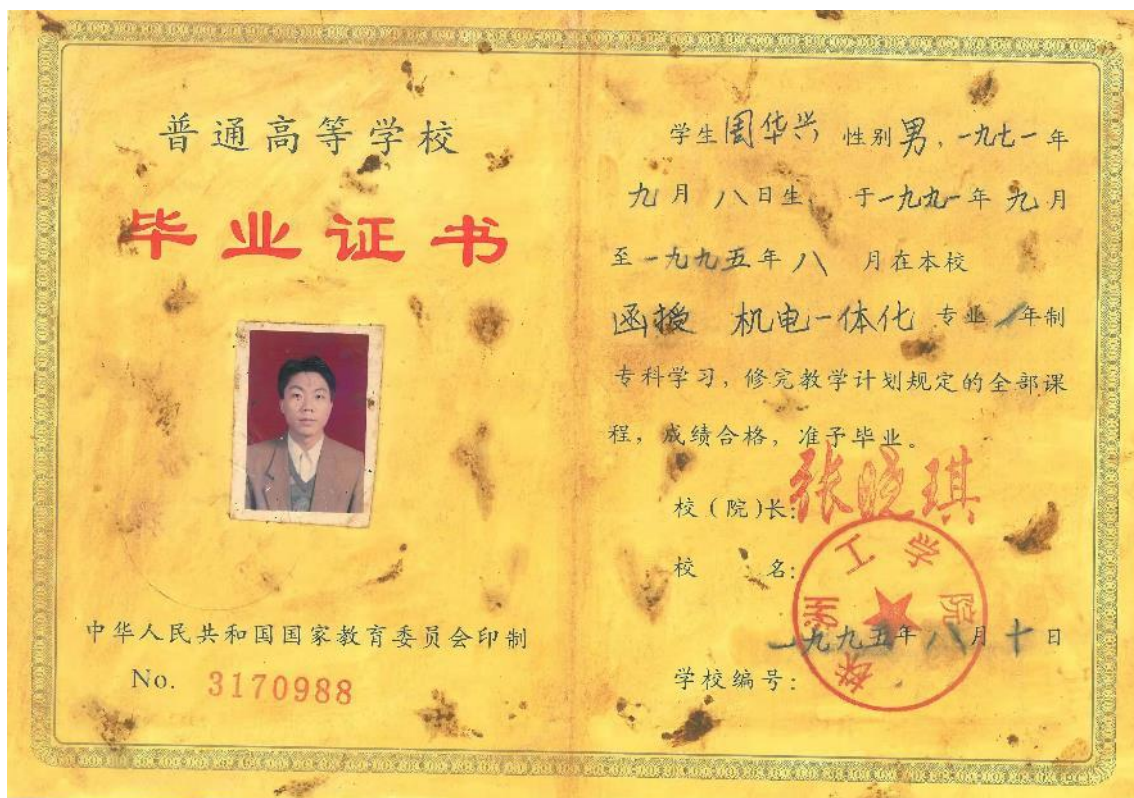 普通高等学校
毕业证书
中华人民共和国国家教育委员会印制
No. 3170988
学生周华兴 性别男,一九七一年
九月八日生,于一九九一年九月
至一九九五年八 月在本校
函授 机电一体化 专业 年制
专科学习,修完教学计划规定的全部课
程,成绩合格,准予毕业。
校(院)长:张晓琪
校 名:
株洲工学院
一九九五年八月十日
学校编号: